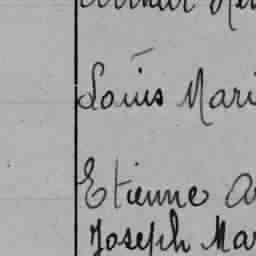 Louis Mari
Etienne A
Joseph Mar